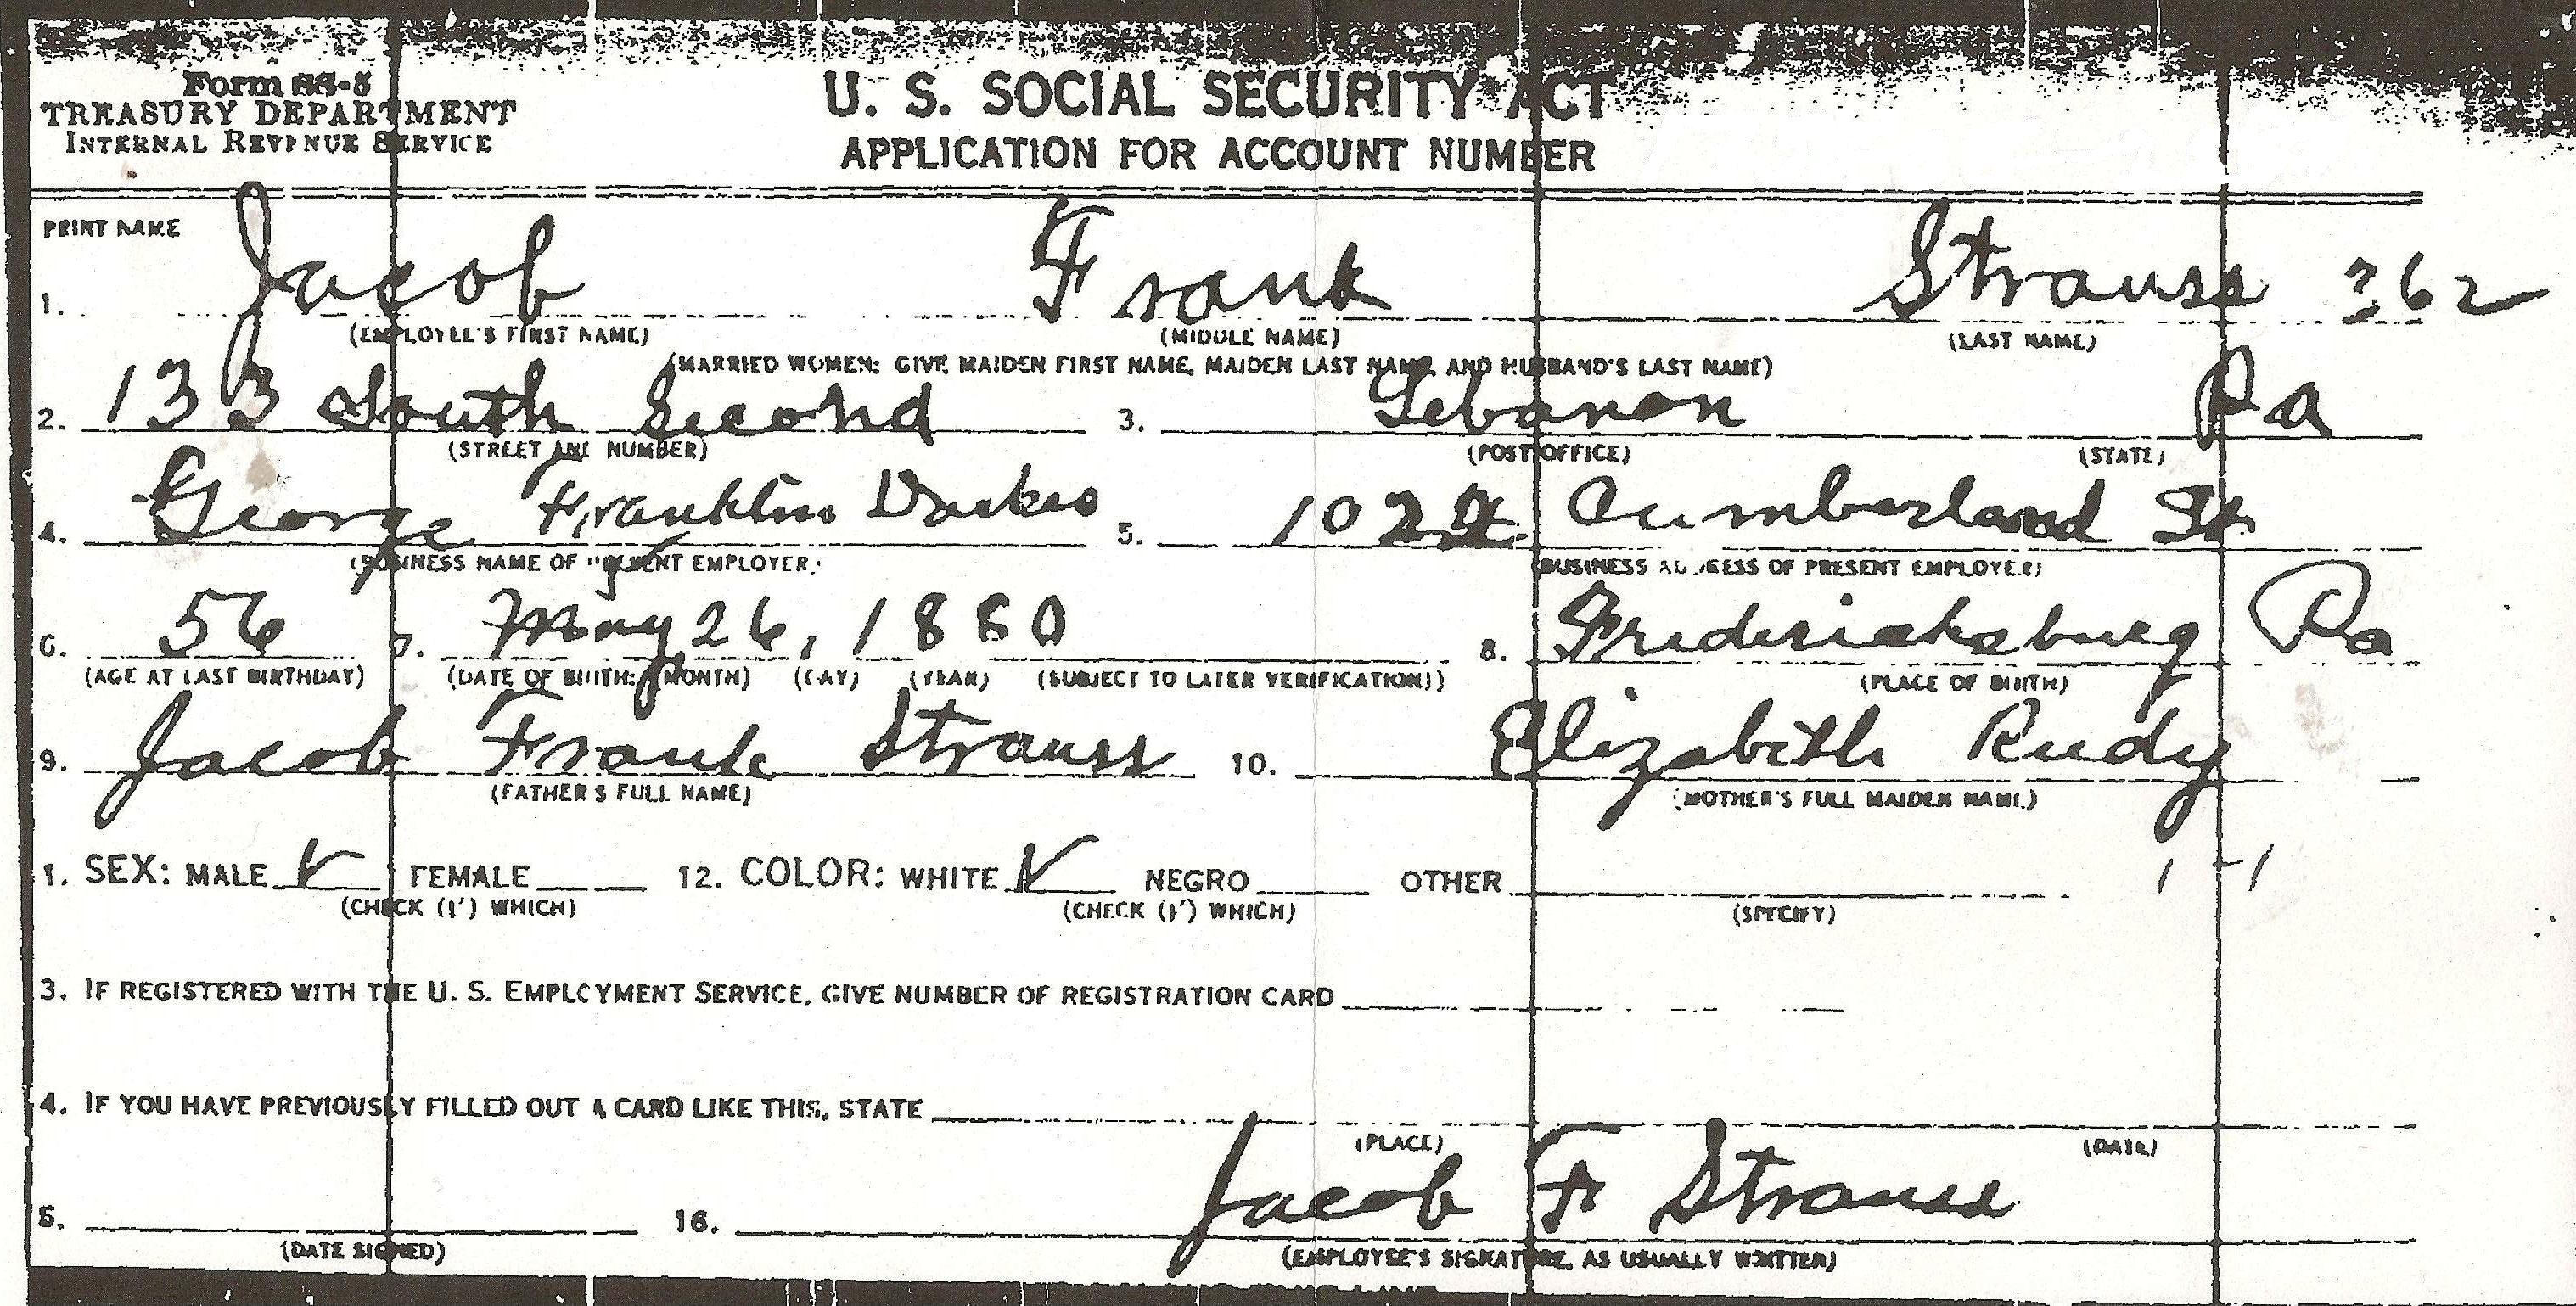 Form SS-5
TREASURY DEPARTMENT
INTERNAL REVENUE SERVICE
U. S. SOCIAL SECURITY ACT
APPLICATION FOR ACCOUNT NUMBER
PRINT NAME
1. Jacob Frank Strauss 362
(EMPLOYEE'S FIRST NAME) (MIDDLE NAME) (LAST NAME)
(MARRIED WOMEN: GIVE MAIDEN FIRST NAME, MAIDEN LAST NAME, AND HUSBAND'S LAST NAME)
2. 133 South Second 3. Lebanon Pa
(STREET AND NUMBER) (POST OFFICE) (STATE)
4. George Franklin 5. Cumberland St
(BUSINESS NAME OF PRESENT EMPLOYER) (BUSINESS ADDRESS OF PRESENT EMPLOYER)
6. 56 7. May 26, 1880 8. Fredericksburg Pa
(AGE AT LAST BIRTHDAY) (DATE OF BIRTH: (MONTH) (DAY) (YEAR) (SUBJECT TO LATER VERIFICATION)) (PLACE OF BIRTH)
9. Jacob Frank Strauss 10. Elizabeth Rudy
(FATHER'S FULL NAME) (MOTHER'S FULL MAIDEN NAME)
1. SEX: MALE ✓ FEMALE 12. COLOR: WHITE ✓ NEGRO OTHER 1-1
(CHECK (✓) WHICH) (CHECK (✓) WHICH) (SPECIFY)
3. IF REGISTERED WITH THE U. S. EMPLOYMENT SERVICE, GIVE NUMBER OF REGISTRATION CARD
4. IF YOU HAVE PREVIOUSLY FILLED OUT A CARD LIKE THIS, STATE
(PLACE) (DATE)
5. 16. Jacob F Strauss
(DATE SIGNED) (EMPLOYEE'S SIGNATURE, AS USUALLY WRITTEN)